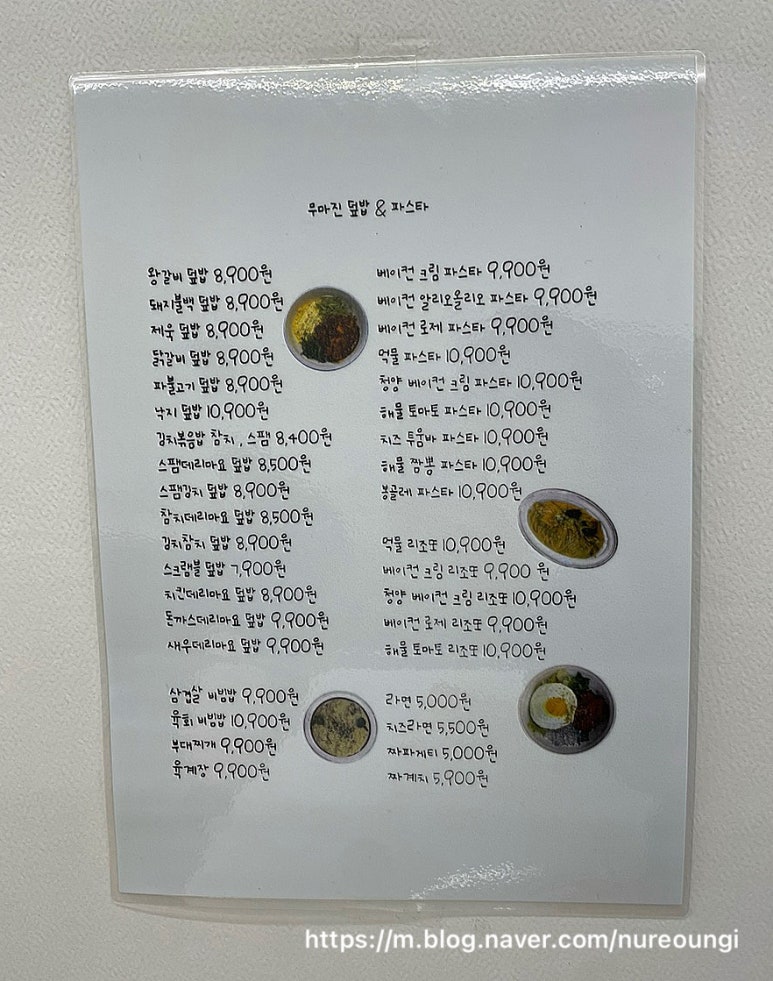 무마진 덮밥 & 파스타
왕갈비 덮밥 8,900원
돼지불백 덮밥 8,900원
제육 덮밥 8,900원
닭갈비 덮밥 8,900원
파불고기 덮밥 8,900원
낙지 덮밥 10,900원
김치볶음밥 참치 , 스팸 8,400원
스팸데리마요 덮밥 8,500원
스팸김치 덮밥 8,900원
참치데리마요 덮밥 8,500원
김치참치 덮밥 8,900원
스크램블 덮밥 7,900원
치킨데리마요 덮밥 8,900원
돈까스데리마요 덮밥 9,900원
새우데리마요 덮밥 9,900원
삼겹살 비빔밥 9,900원
육회 비빔밥 10,900원
부대찌개 9,900원
육계장 9,900원
베이컨 크림 파스타 9,900원
베이컨 알리오올리오 파스타 9,900원
베이컨 로제 파스타 9,900원
억물 파스타 10,900원
청양 베이컨 크림 파스타 10,900원
해물 토마토 파스타 10,900원
치즈 투움바 파스타 10,900원
해물 짬뽕 파스타 10,900원
봉골레 파스타 10,900원
억물 리조또 10,900원
베이컨 크림 리조또 9,900 원
청양 베이컨 크림 리조또 10,900원
베이컨 로제 리조또 9,900원
해물 토마토 리조또 10,900원
라면 5,000원
치즈라면 5,500원
짜파게티 5,000원
짜계치 5,900원
https://m.blog.naver.com/nureoungi